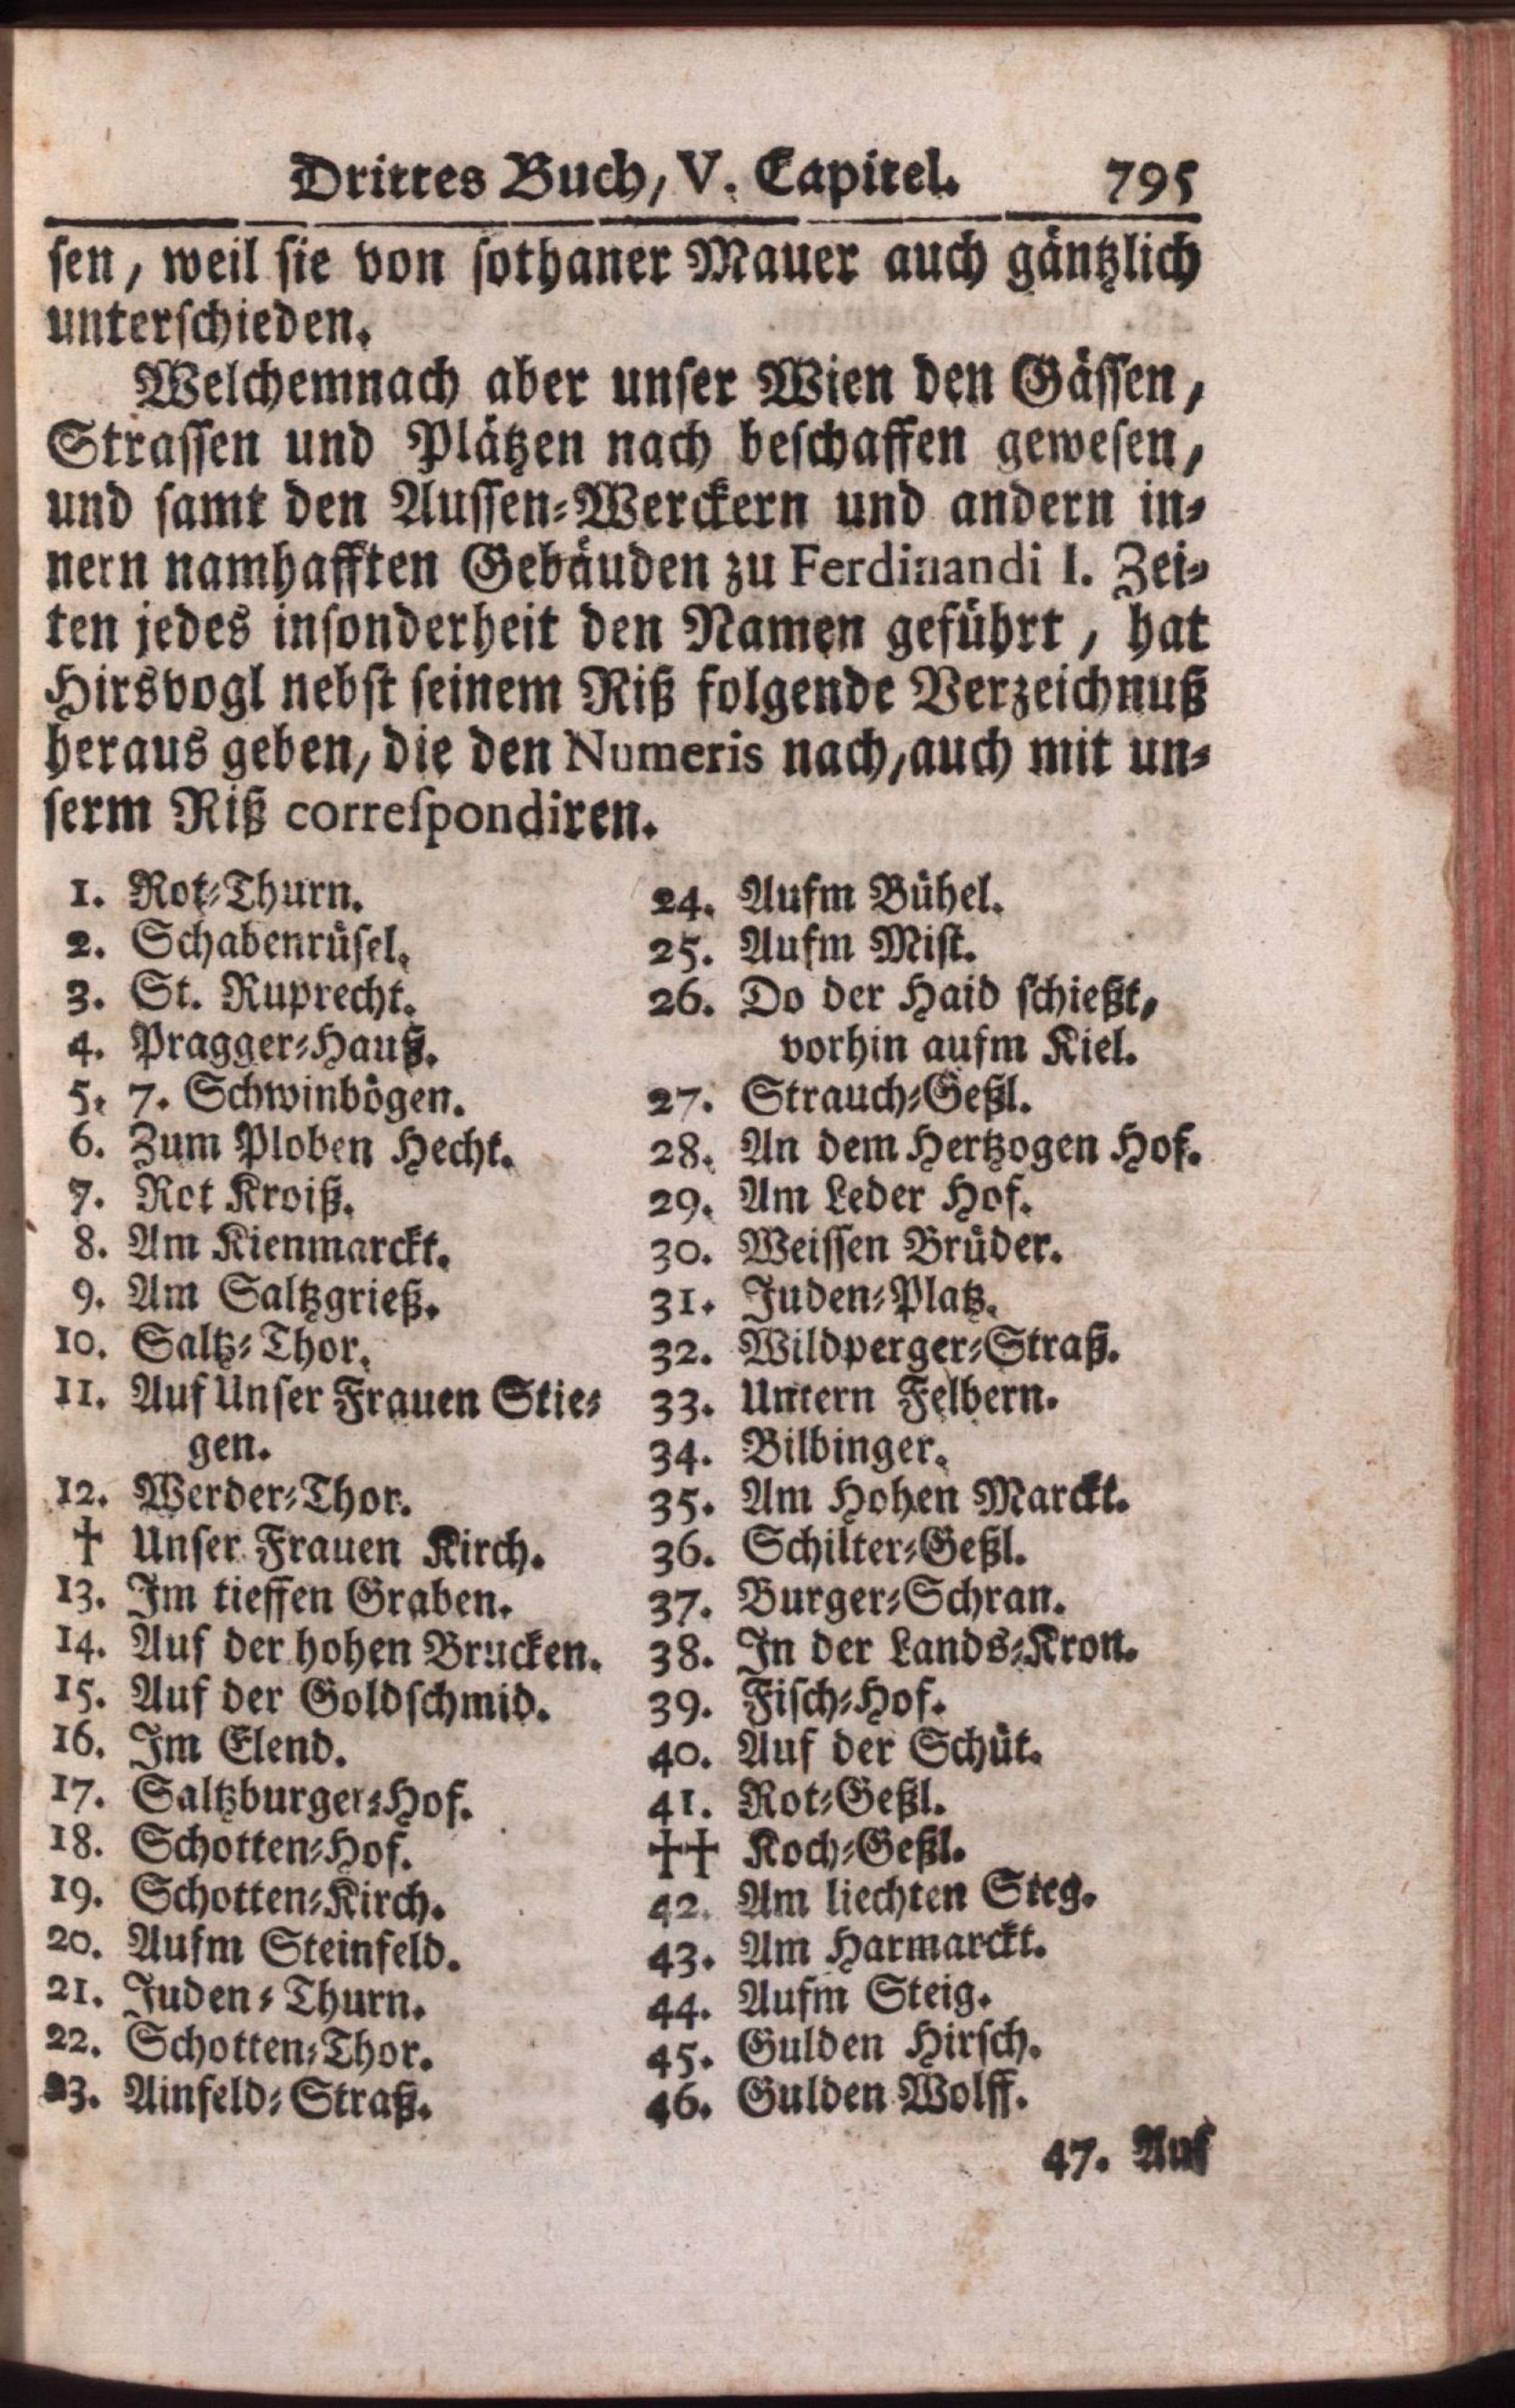 Drittes Buch, V. Capitel. 795
sen, weil sie von sothaner Mauer auch gäntzlich
unterschieden.
Welchemnach aber unser Wien den Gässen,
Strassen und Plätzen nach beschaffen gewesen,
und samt den Aussen-Werckern und andern in-
nern namhafften Gebäuden zu Ferdinandi I. Zei-
ten jedes insonderheit den Namen geführt, hat
Hirsvogl nebst seinem Riß folgende Verzeichnuß
heraus geben, die den Numeris nach, auch mit un-
serm Riß correspondiren.
1. Rot-Thurn.
2. Schabenrüsel.
3. St. Ruprecht.
4. Pragger-Hauß.
5. 7. Schwinbögen.
6. Zum Ploben Hecht.
7. Rot Kroiß.
8. Am Kienmarckt.
9. Am Saltzgrieß.
10. Saltz-Thor.
11. Auf Unser Frauen Stie-
gen.
12. Werder-Thor.
† Unser Frauen Kirch.
13. Im tieffen Graben.
14. Auf der hohen Brucken.
15. Auf der Goldschmid.
16. Im Elend.
17. Saltzburger-Hof.
18. Schotten-Hof.
19. Schotten-Kirch.
20. Aufm Steinfeld.
21. Juden-Thurn.
22. Schotten-Thor.
23. Ainfeld-Straß.
24. Aufm Bühel.
25. Aufm Mist.
26. Do der Haid schießt,
vorhin aufm Kiel.
27. Strauch-Geßl.
28. An dem Hertzogen Hof.
29. Am Leder Hof.
30. Weissen Brüder.
31. Juden-Platz.
32. Wildperger-Straß.
33. Untern Felbern.
34. Bilbinger.
35. Am Hohen Marckt.
36. Schilter-Geßl.
37. Burger-Schran.
38. In der Lands-Kron.
39. Fisch-Hof.
40. Auf der Schüt.
41. Rot-Geßl.
†† Koch-Geßl.
42. Am liechten Steg.
43. Am Harmarckt.
44. Aufm Steig.
45. Gulden Hirsch.
46. Gulden Wolff.
47. Auf